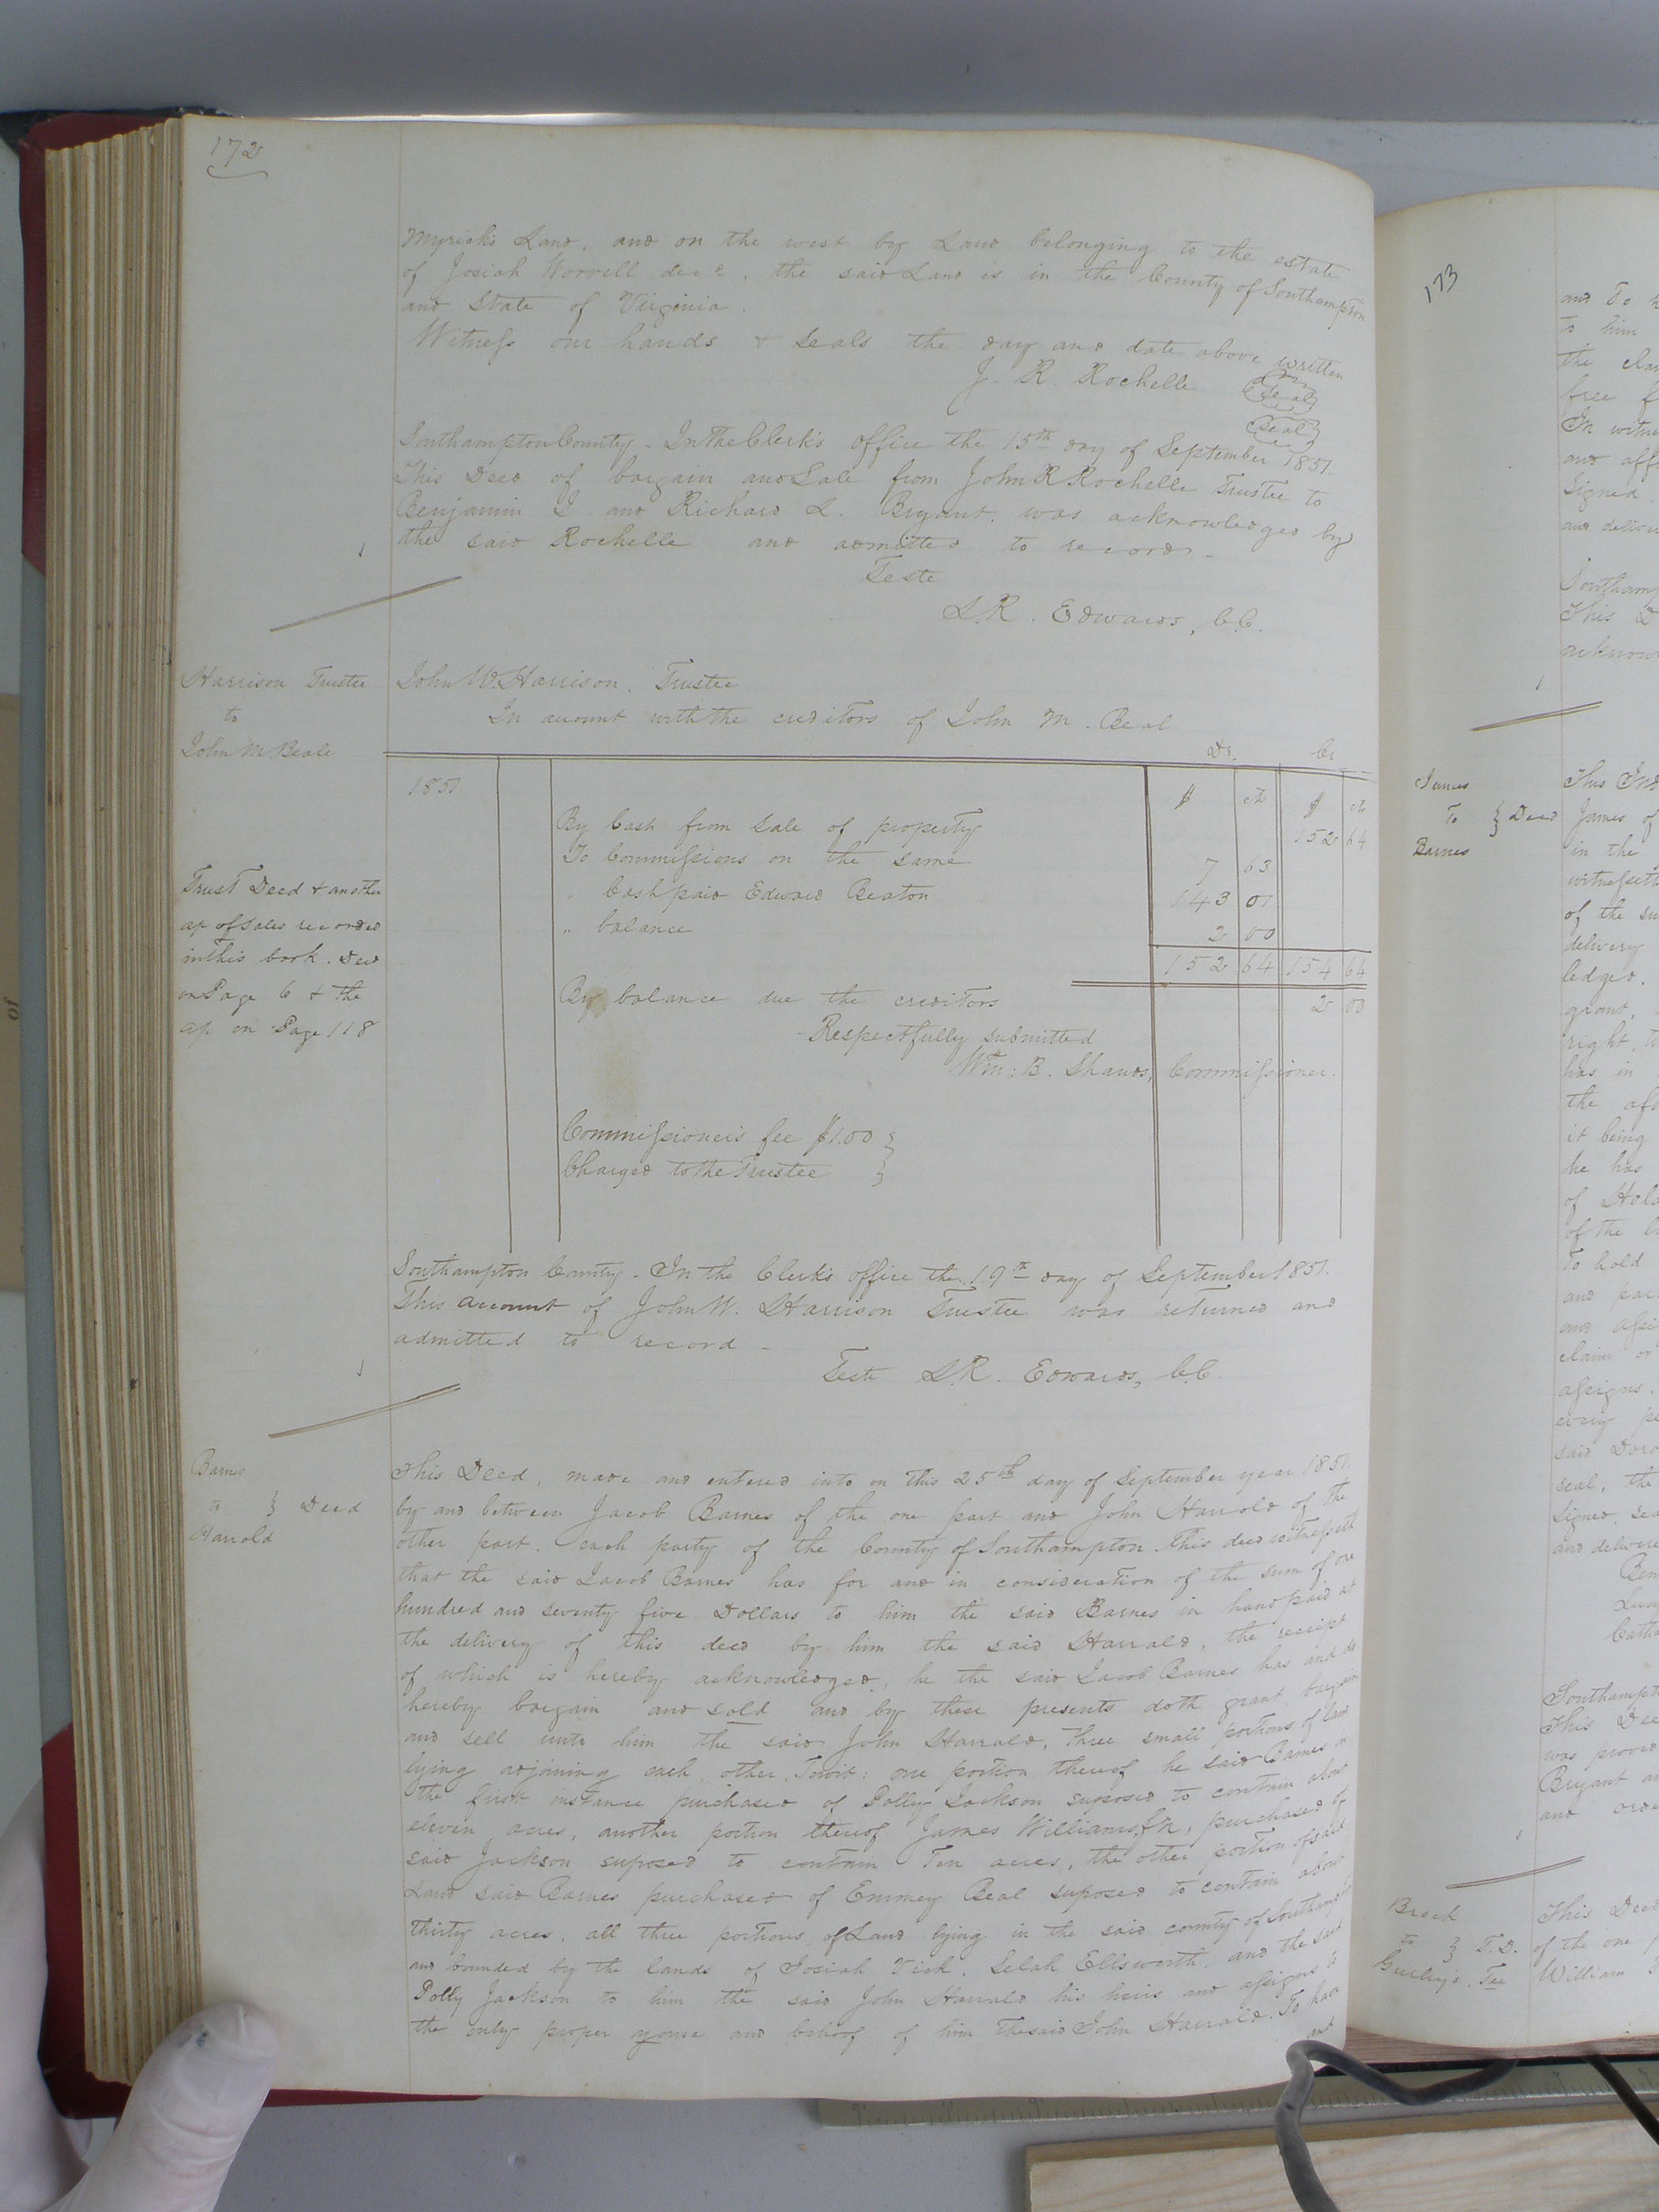 172
Myrick's Land, and on the west by Land belonging to the estate
of Josiah Worrell decd. the said Land is in the County of Southampton
and State of Virginia.
Witness our hands & seals the day and date above written
J. R. Rochelle Seal
Seal
Southampton County. In the Clerk's office the 15th day of September 1851.
This Deed of bargain and Sale from John R Rochelle Trustee to
Benjamin and Richard L. Bryant, was acknowledged by
the said Rochelle and admitted to record.
Teste
L.R. Edwards, C.C.
Harrison Trustee
to
John M Beale
John W. Harrison. Trustee
In account with the creditors of John M. Beal
Dr. Cr
1851
$ cts $ cts
By Cash from sale of property 152 64
To Commissions on the same 7 63
" Cash paid Edward Beaton 143 01
" balance 2 00
152 64 154 64
By balance due the creditors 2 00
Respectfully submitted
Wm. B. Shands, Commissioner.
Commissioner's fee $1.00
Charged to the Trustee
Trust Deed & another
ap of sales recorded
in this book. Deed
on Page 6 & the
ap on Page 118
Southampton County. In the Clerk's office the 19th day of September 1851.
This account of John W. Harrison Trustee was returned and
admitted to record.
Teste L.R. Edwards, C.C.
Barnes
to } Deed
Harrold
This Deed, made and entered into on this 25th day of September year 1851.
by and between Jacob Barnes of the one part and John Harrold of the
other part. each party of the County of Southampton. This deed witnesseth
that the said Jacob Barnes has for and in consideration of the sum of one
hundred and seventy five Dollars to him the said Barnes in hand paid at
the delivery of this deed by him the said Harrald, the receipt
of which is hereby acknowledged, he the said Jacob Barnes has and do
hereby bargain and sold and by these presents doth grant, bargain
and sell unto him the said John Harrald, three small portions of land
lying adjoining each other, Towit: one portion thereof he said Barnes in
the first instance purchased of Polly Jackson suposed to contain about
eleven acres, another portion thereof James Williams, purchased of
said Jackson suposed to contain Ten acres, the other portion of said
Land said Barnes purchased of Emmey Beal suposed to contain about
thirty acres, all three portions of Land lying in the said county of
and bounded by the lands of Josiah Vick, Selah Ellsworth, and the said
Polly Jackson to him the said John Harrald his heirs and assigns to
the only proper youse and behoof of him the said John Harrald. To have
and
173
and To
to him
the
free
In
and
Signed
and
This
James
To } Deed
Barnes
This
James of
in the
of the
delivery
ledged.
grant,
right,
has in
the
it being
he has
of
of the
To hold
and
and
claim or
assigns.
every
said
seal, the
Signed,
and
This Dee
was
Bryant
and
Brock
to } T.D.
This Deed
of the one
William